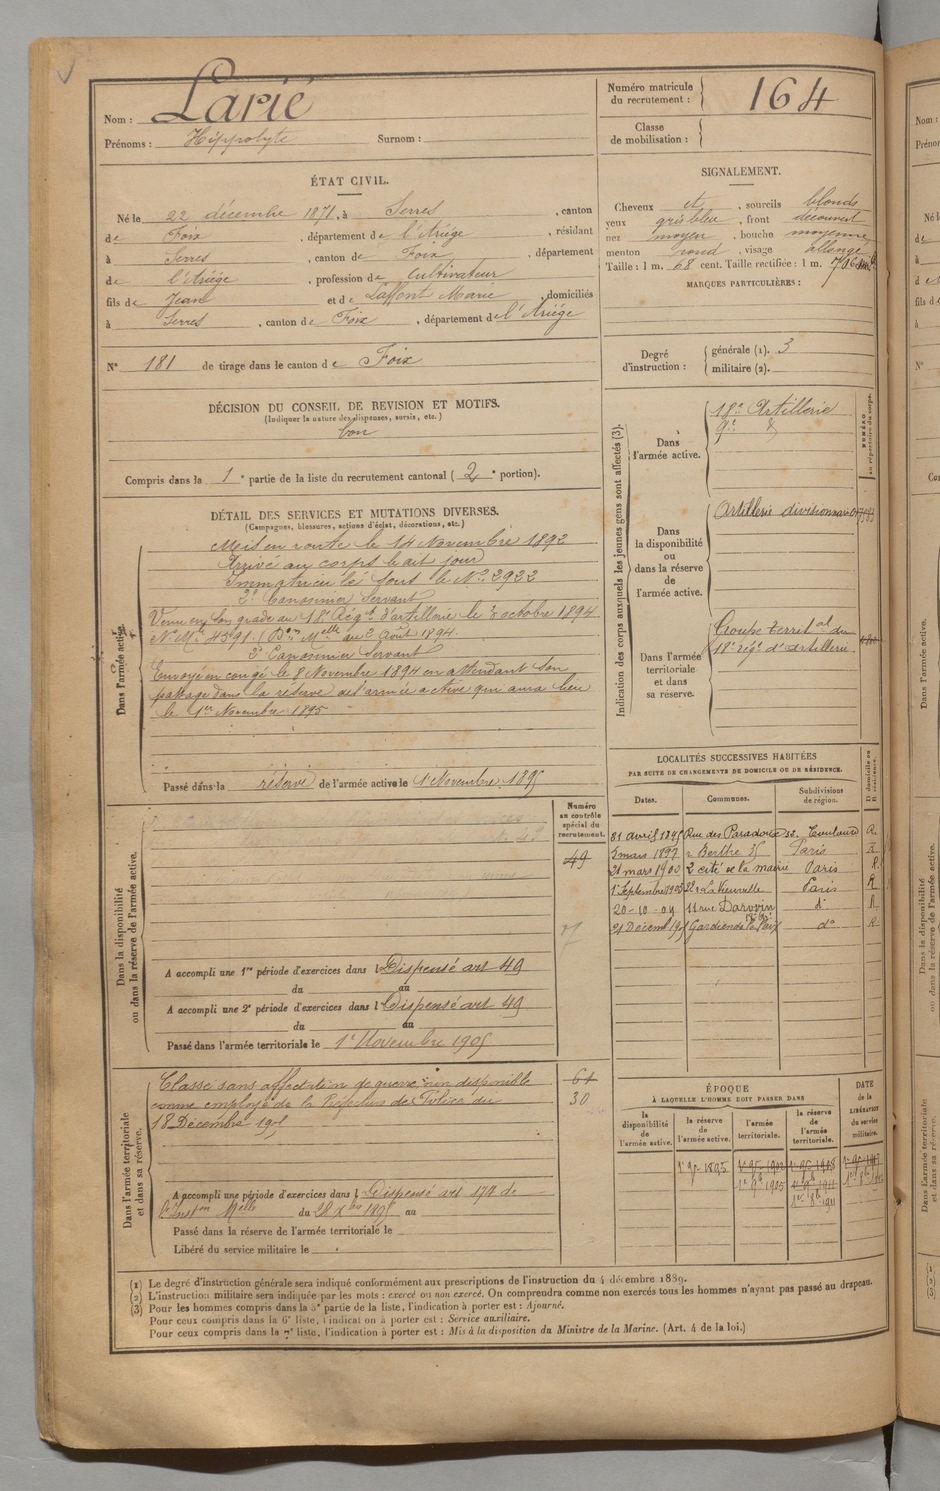 Nom : Larié
Prénoms : Hippolyte Surnom :
Numéro matricule du recrutement : 164
Classe de mobilisation :
ÉTAT CIVIL.
Né le 22 décembre 1871, à Serres, canton
de Foix, département de l'Ariége, résidant
à Serres, canton de Foix, département
de l'Ariége, profession de Cultivateur
fils de Jean et de Laffont Marie, domiciliés
à Serres, canton de Foix, département de l'Ariége
N° 181 de tirage dans le canton de Foix
SIGNALEMENT.
Cheveux et, sourcils blonds
yeux gris bleu, front découvert
nez moyen, bouche moyenne
menton rond, visage allongé
Taille : 1 m. 68 cent. Taille rectifiée : 1 m.
MARQUES PARTICULIÈRES :
Degré d'instruction : générale (1). 3
militaire (2).
DÉCISION DU CONSEIL DE REVISION ET MOTIFS.
(Indiquer la nature des dispenses, sursis, etc.)
bon
Compris dans la 1e partie de la liste du recrutement cantonal (2e portion).
DÉTAIL DES SERVICES ET MUTATIONS DIVERSES.
(Campagnes, blessures, actions d'éclat, décorations, etc.)
Dans l'armée active.
Mis en route le 14 Novembre 1892
Arrivé au corps le dit jour
Immatriculé sous le N° 2922
2e Canonnier Servant
Venu en son grade au 18e Régt d'artillerie le 3 octobre 1894
N° Mle 4591. (Don Melle du 2 Août 1894.
2e Canonnier Servant
Envoyé en congé le 8 Novembre 1894 en attendant son
passage dans la réserve de l'armée active qui aura lieu
le 1er Novembre 1895
Passé dans la réserve de l'armée active le 1er Novembre 1895
Indication des corps auxquels les jeunes gens sont affectés (3).
NUMÉRO au répertoire du corps.
Dans l'armée active.
18e Artillerie
9e
Dans la disponibilité ou dans la réserve de l'armée active.
Artillerie divisionnaire
Dans l'armée territoriale et dans sa réserve.
Groupe territal du
18e régt d'Artillerie.
LOCALITÉS SUCCESSIVES HABITÉES
PAR SUITE DE CHANGEMENTS DE DOMICILE OU DE RÉSIDENCE.
Dates. Communes. Subdivisions de région. D domicile ou R résidence.
31 avril 1895 Rue des Paradoux 32. Toulouse R
5 mars 1897 r. Berthe 35 Paris R
21 mars 1900 2 cité de la mairie Paris R
1er Septembre 1903 22 r. La Vieuville Paris R
20-10-04 11 rue Darwin do R
21 Décemb 1905 Gardien de la Paix do R
Dans la disponibilité ou dans la réserve de l'armée active.
Numéro au contrôle spécial du recrutement.
49
A accompli une 1re période d'exercices dans l Dispensé art 49
du au
A accompli une 2e période d'exercices dans l Dispensé art 49
du au
Passé dans l'armée territoriale le 1er Novembre 1905
Dans l'armée territoriale et dans sa réserve.
Classé sans affectation de guerre : non disponible
comme employé de la Préfecture de Police du
18 Décembre 1905
61
30
A accompli une période d'exercices dans l Dispensé art 174 de
l'Inston Melle du 28 Xbre 1895 au
Passé dans la réserve de l'armée territoriale le
Libéré du service militaire le
ÉPOQUE
À LAQUELLE L'HOMME DOIT PASSER DANS
la disponibilité de l'armée active. la réserve de l'armée active. l'armée territoriale. la réserve de l'armée territoriale.
DATE de la LIBÉRATION du service militaire.
1er 9bre 1895
1er 9bre 1905
(1) Le degré d'instruction générale sera indiqué conformément aux prescriptions de l'instruction du 4 décembre 1889.
(2) L'instruction militaire sera indiquée par les mots : exercé ou non exercé. On comprendra comme non exercés tous les hommes n'ayant pas passé au drapeau.
(3) Pour les hommes compris dans la 5e partie de la liste, l'indication à porter est : Ajourné.
Pour ceux compris dans la 6e liste, l'indication à porter est : Service auxiliaire.
Pour ceux compris dans la 7e liste, l'indication à porter est : Mis à la disposition du Ministre de la Marine. (Art. 4 de la loi.)